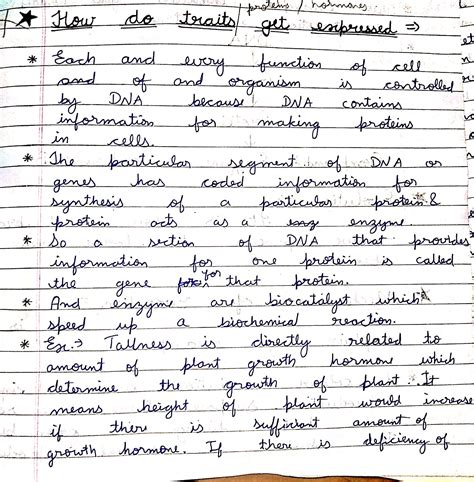 proteins / hormones
★ How do traits get expressed ⇒
* Each and every function of cell
and of and organism is controlled
by DNA because DNA contains
information for making proteins
in cells.
* The particular segment of DNA or
genes has coded information for
synthesis of a particular protein &
protein acts as a enzyme.
* So a section of DNA that provides
information for one protein is called
the gene for that protein.
* And enzyme are biocatalyst which
speed up a biochemical reaction.
* Ex:- Tallness is directly related to
amount of plant growth hormone which
determine the growth of plant. It
means height of plant would increase
if there is sufficient amount of
growth hormone. If there is deficiency of